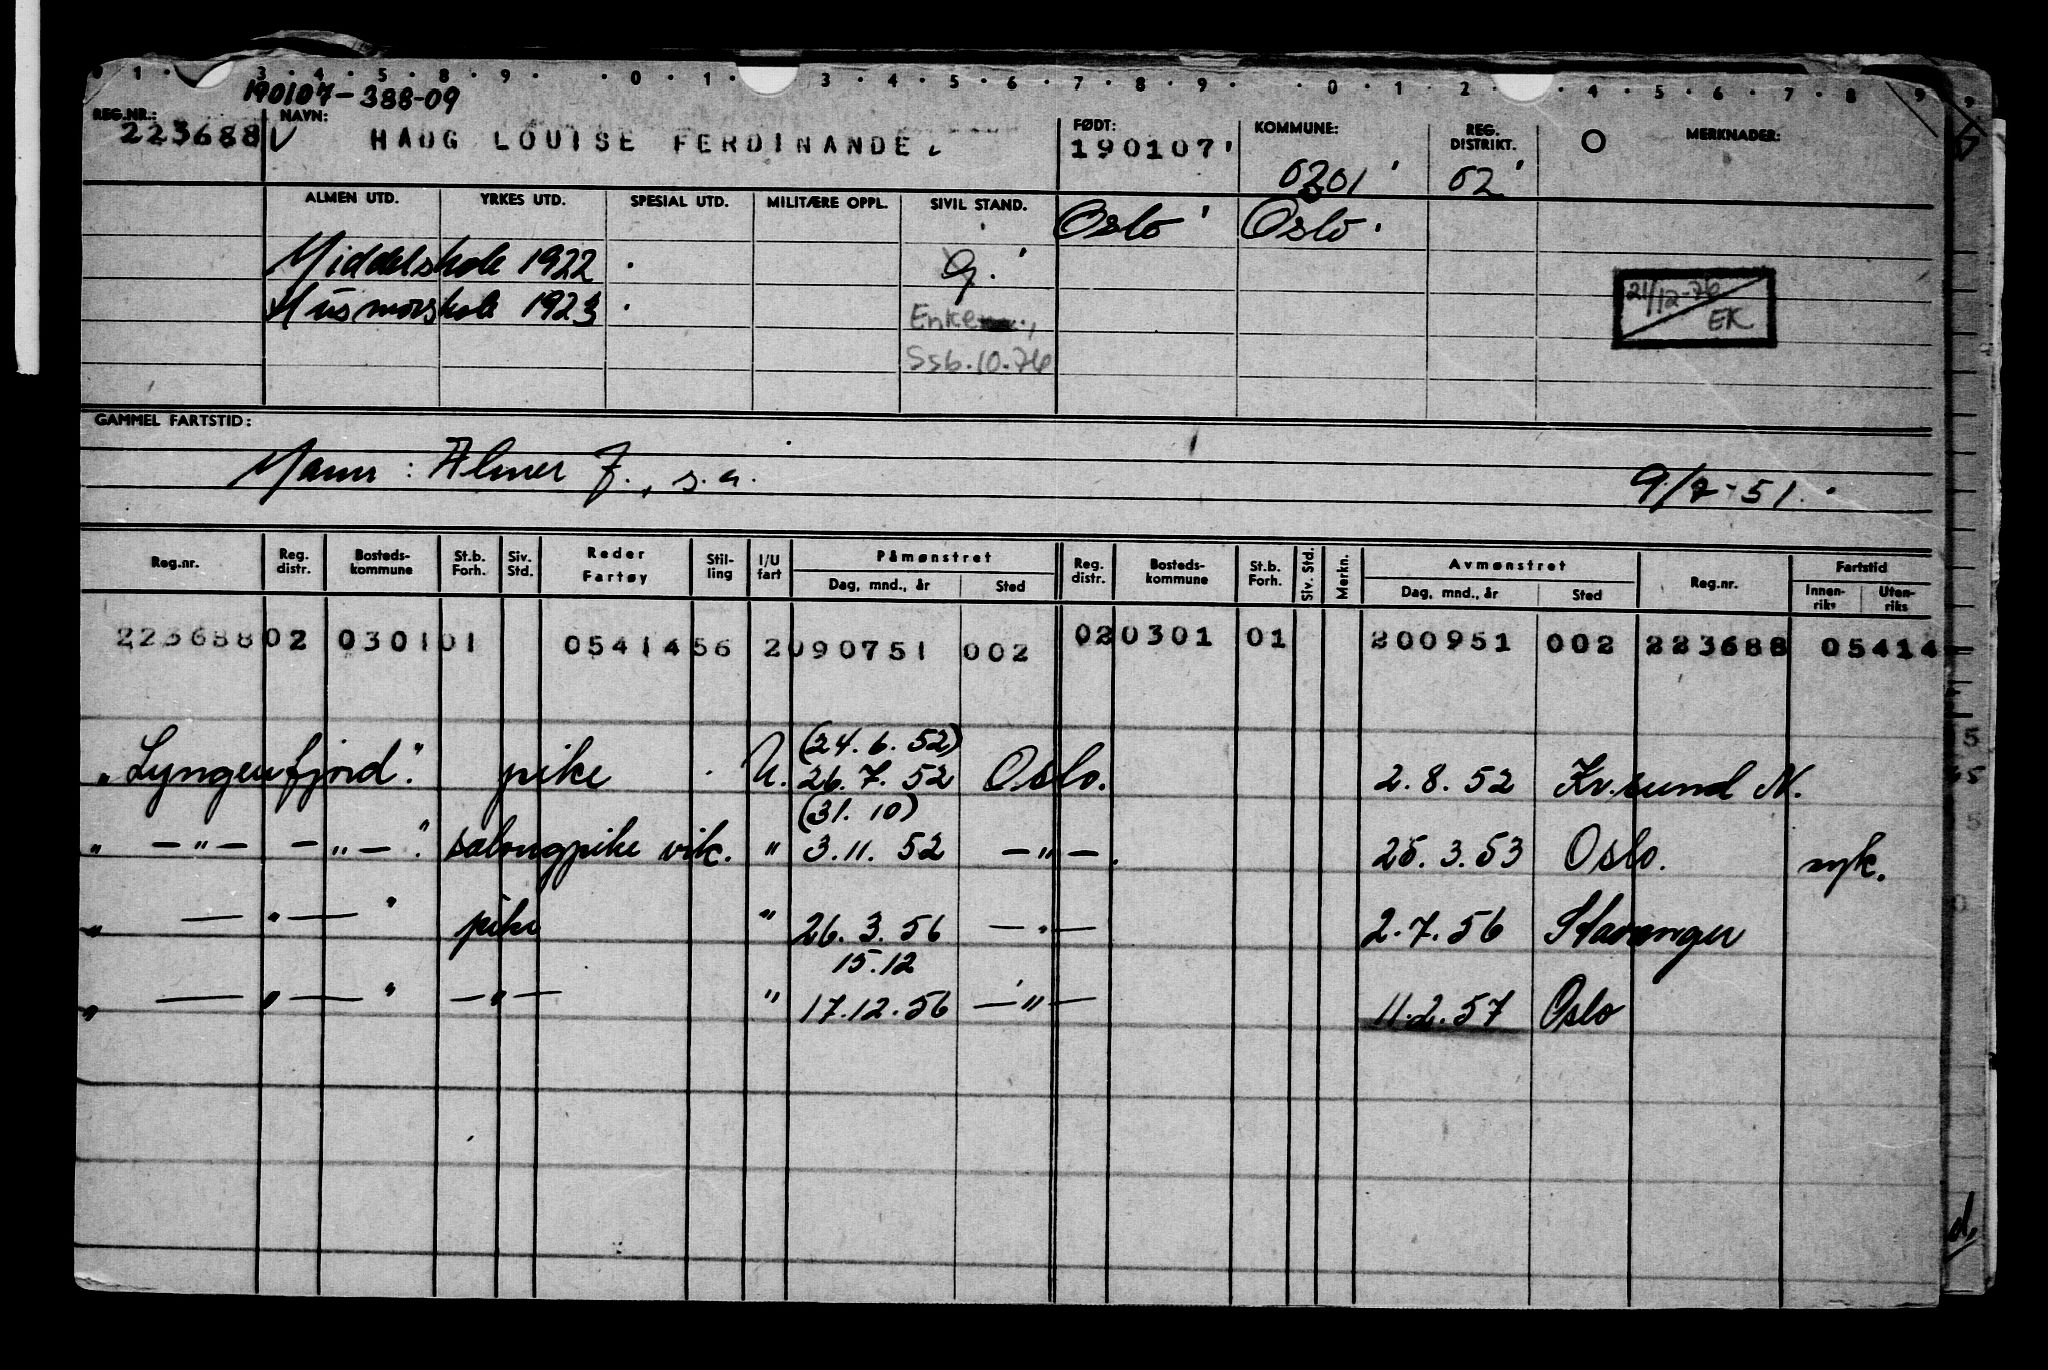 190107-388-09
REG.NR.: NAVN: FØDT: KOMMUNE: REG. DISTRIKT. O MERKNADER:
223688 V HAUG LOUISE FERDINANDE 190107 0301 02
ALMEN UTD. YRKES UTD. SPESIAL UTD. MILITÆRE OPPL. SIVIL STAND. Oslo Oslo.
Middelskole 1922 g.
Husmorskole 1923 Enke
Ssb.10.76
21/12-76
EK
GAMMEL FARTSTID:
Mann: Almer J., s.a. 9/7-51.
Reg.nr. Reg. distr. Bosteds-kommune St.b. Forh. Siv. Std. Reder Fartøy Stil-ling I/U fart Påmønstret Reg. distr. Bosteds-kommune St.b. Forh. Siv. Std. Merkn. Avmønstret Reg.nr. Fartstid
Dag, mnd., år Sted Dag, mnd., år Sted Innen-riks Uten-riks
223688 02 0301 01 05414 56 2 090751 002 02 0301 01 200951 002 223688 05414
(24.6.52)
"Lyngenfjord". pike U. 26.7.52 Oslo. 2.8.52 Kr.sund N.
(31.10)
" -"- -"-." salongpike vik. " 3.11.52 -"-. 25.3.53 Oslo. syk.
" -"- " pike " 26.3.56 -"- 2.7.56 Stavanger
15.12
" -"- " -"- " 17.12.56 -"- 11.2.57 Oslo